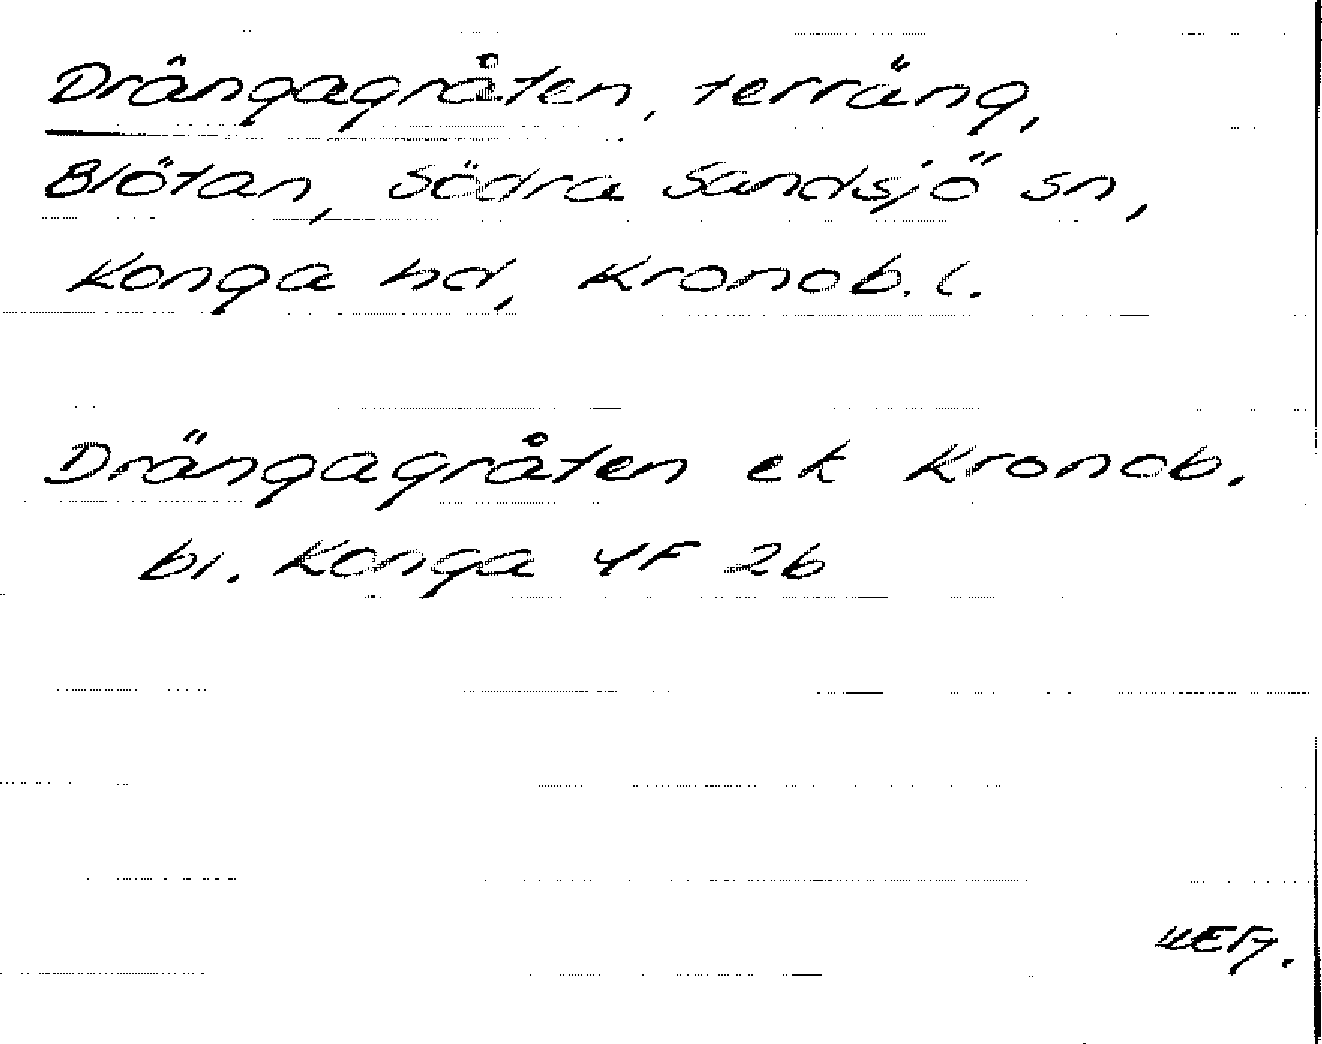 Drängagråten, terräng,
Blötan, Södra Sandsjö sn,
Konga hd, Kronob. l.
Drängagråten ek Kronob.
bl. Konga 4F 2b